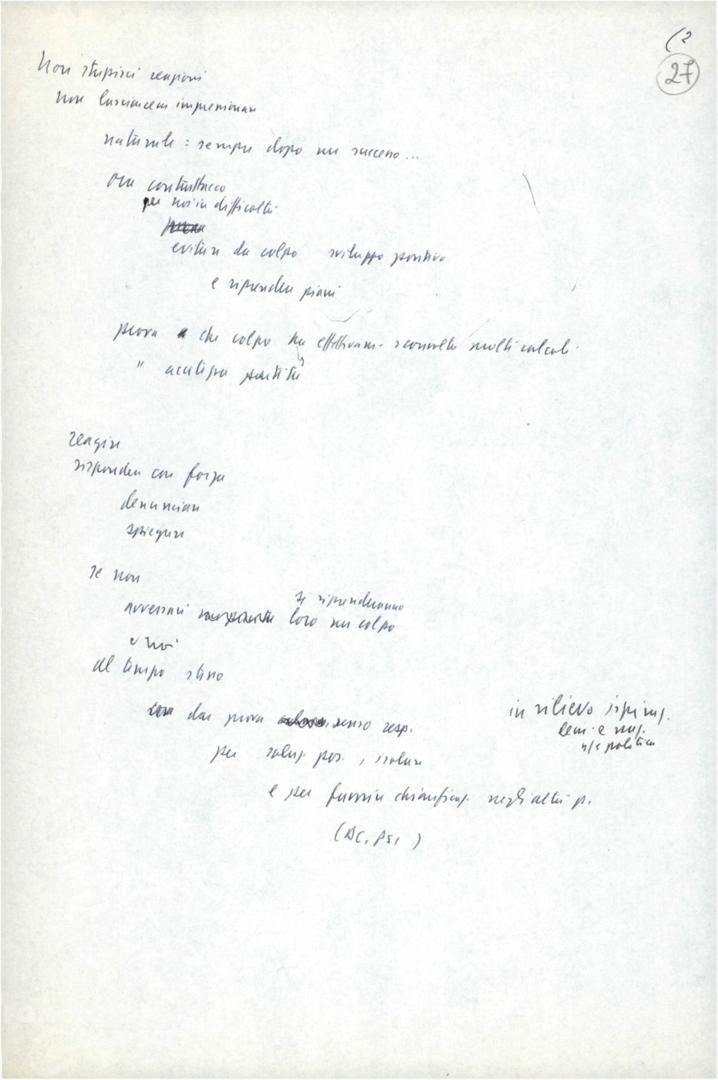 (2
27
Non stupirci reazioni
non lasciarem impressionar
naturale : sempre dopo un successo...
ora contrattacco
per noi in difficoltà
evitare da colpo sviluppo positivo
e riprender piani
prova che colpo ha effettivam. sconvolto molti calcoli
" acutizza partita
reagire
risponder con forza
denunciare
spiegare
se non
si riprenderanno
avversari loro un colpo
e noi
al tempo stesso
dar prova senso resp.
per soluz. pos., isolare
e per favorire chiarificaz. negli altri p.
(DC, PSI)
in rilievo ispiraz.
n/s politica